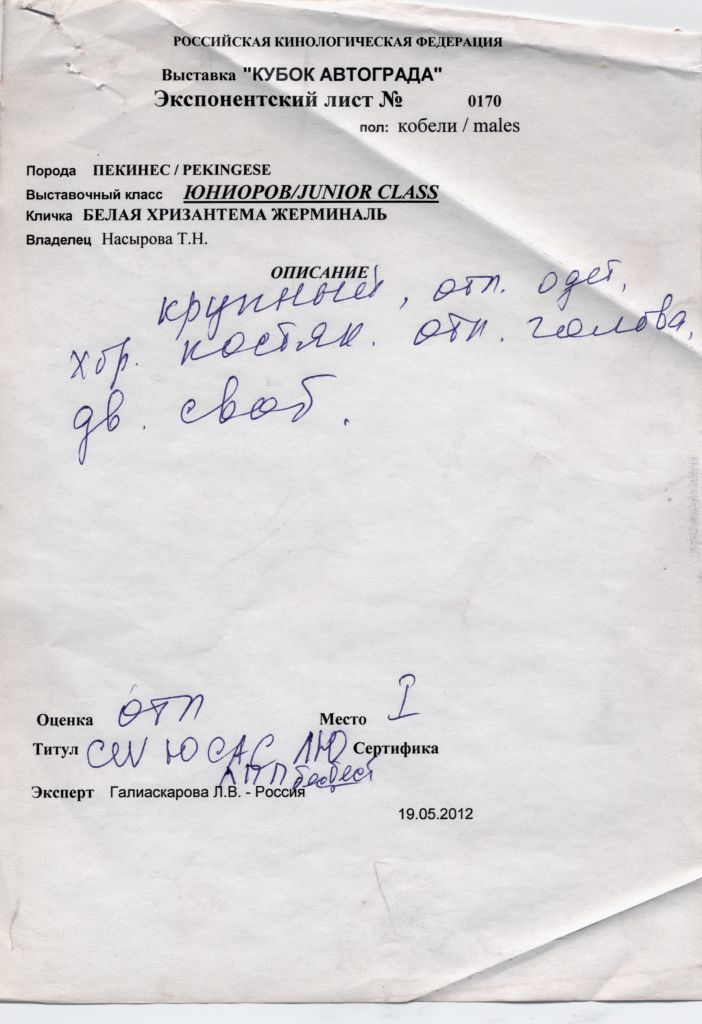 РОССИЙСКАЯ КИНОЛОГИЧЕСКАЯ ФЕДЕРАЦИЯ
Выставка "КУБОК АВТОГРАДА"
Экспонентский лист № 0170
пол: кобели / males
Порода ПЕКИНЕС / PEKINGESE
Выставочный класс ЮНИОРОВ/JUNIOR CLASS
Кличка БЕЛАЯ ХРИЗАНТЕМА ЖЕРМИНАЛЬ
Владелец Насырова Т.Н.
ОПИСАНИЕ
крупный, отл. одет,
хор. костяк. отл. голова,
дв. своб.
Оценка отл Место I
Титул CW ЮСАС ЛЮ Сертифика
ЛПП
Эксперт Галиаскарова Л.В. - Россия
19.05.2012